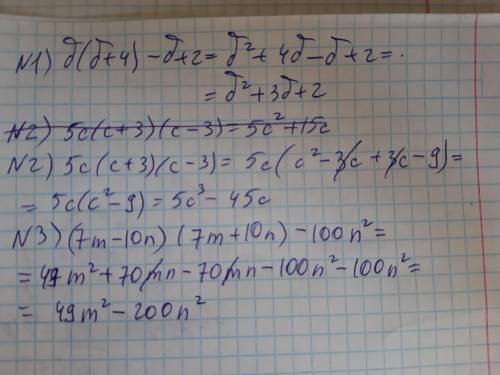 N1) б(б+4) - б+2 = б² + 4б - б + 2 =
= б² + 3б + 2
N2) 5c(c+3)(c-3) = 5c² + 15c
N2) 5c(c+3)(c-3) = 5c(c² - 3c + 3c - 9) =
= 5c(c² - 9) = 5c³ - 45c
N3) (7m - 10n)(7m + 10n) - 100n² =
= 49m² + 70mn - 70mn - 100n² - 100n² =
= 49m² - 200n²